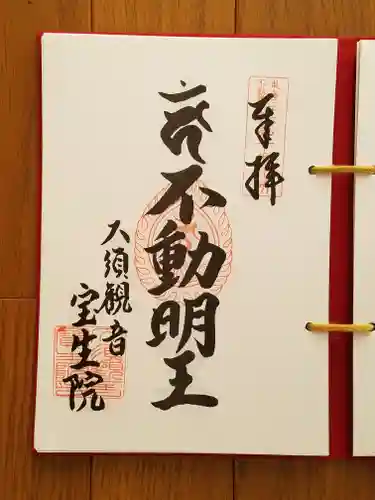 奉拝
不動明王
大須観音
宝生院